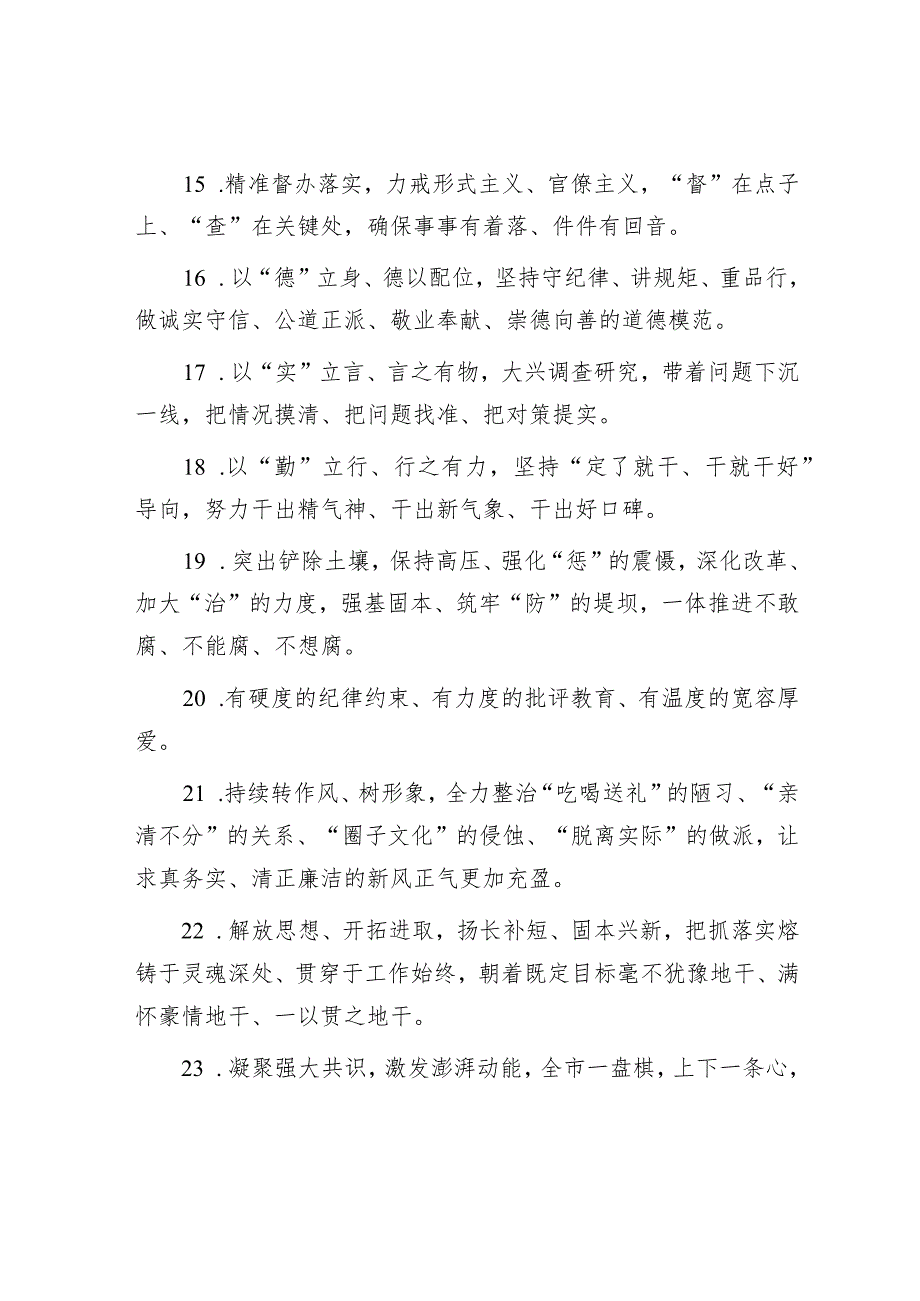 15 .精准督办落实，力戒形式主义、官僚主义，“督”在点子
上、“查”在关键处，确保事事有着落、件件有回音。
16 . 以“德”立身、德以配位，坚持守纪律、讲规矩、重品行，
做诚实守信、公道正派、敬业奉献、崇德向善的道德模范。
17 . 以“实”立言、言之有物，大兴调查研究，带着问题下沉
一线，把情况摸清、把问题找准、把对策提实。
18 . 以“勤”立行、行之有力，坚持“定了就干、干就干好”
导向，努力干出精气神、干出新气象、干出好口碑。
19 . 突出铲除土壤，保持高压、强化“惩”的震慑，深化改革、
加大“治”的力度，强基固本、筑牢“防”的堤坝，一体推进不敢
腐、不能腐、不想腐。
20 .有硬度的纪律约束、有力度的批评教育、有温度的宽容厚
爱。
21 .持续转作风、树形象，全力整治“吃喝送礼”的陋习、“亲
清不分”的关系、“圈子文化”的侵蚀、“脱离实际”的做派，让
求真务实、清正廉洁的新风正气更加充盈。
22 . 解放思想、开拓进取，扬长补短、固本兴新，把抓落实熔
铸于灵魂深处、贯穿于工作始终，朝着既定目标毫不犹豫地干、满
怀豪情地干、一以贯之地干。
23 . 凝聚强大共识，激发澎湃动能，全市一盘棋，上下一条心，